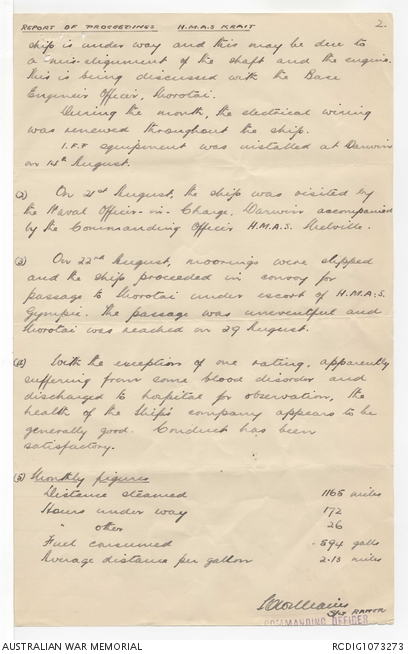 REPORT OF PROCEEDINGS H.M.A.S KRAIT 2.
ship is under way and this may be due to
a mis-alignment of the shaft and the engine.
This is being discussed with the Base
Engineer Officer, Morotai.
During the month, the electrical wiring
was renewed throughout the ship.
I.F.F equipment was installed at Darwin
on 14th August.
(2) On 21st August, the ship was visited by
the Naval Officer-in-Charge, Darwin accompanied
by the Commanding Officer H.M.A.S. Melville.
(3) On 22nd August, moorings were slipped
and the ship proceeded in convoy for
passage to Morotai under escort of H.M.A.S.
Gympie. The passage was uneventful and
Morotai was reached on 29 August.
(4) With the exception of one rating, apparently
suffering from some blood disorder and
discharged to hospital for observation, the
health of the Ship's company appears to be
generally good. Conduct has been
satisfactory.
(5) Monthly figures
Distance steamed 1165 miles
Hours under way 172
" other 26
Fuel consumed 594 galls
Average distance per gallon 2.13 miles
RANVR
COMMANDING OFFICER
AUSTRALIAN WAR MEMORIAL RCDIG1073273